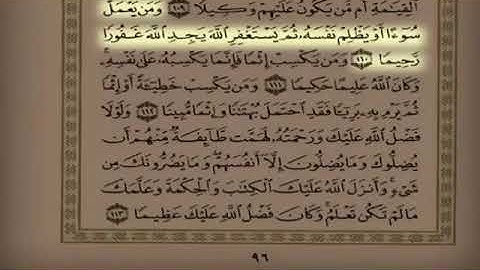 ٱلۡقِيَٰمَةِ أَم مَّن يَكُونُ عَلَيۡهِمۡ وَكِيلٗا ١٠٩ وَمَن يَعۡمَلۡ
سُوٓءًا أَوۡ يَظۡلِمۡ نَفۡسَهُۥ ثُمَّ يَسۡتَغۡفِرِ ٱللَّهَ يَجِدِ ٱللَّهَ غَفُورٗا
رَّحِيمٗا ١١٠ وَمَن يَكۡسِبۡ إِثۡمٗا فَإِنَّمَا يَكۡسِبُهُۥ عَلَىٰ نَفۡسِهِۦۚ
وَكَانَ ٱللَّهُ عَلِيمًا حَكِيمٗا ١١١ وَمَن يَكۡسِبۡ خَطِيٓـَٔةً أَوۡ إِثۡمٗا
ثُمَّ يَرۡمِ بِهِۦ بَرِيٓـٔٗا فَقَدِ ٱحۡتَمَلَ بُهۡتَٰنٗا وَإِثۡمٗا مُّبِينٗا ١١٢ وَلَوۡلَا
فَضۡلُ ٱللَّهِ عَلَيۡكَ وَرَحۡمَتُهُۥ لَهَمَّت طَّآئِفَةٞ مِّنۡهُمۡ أَن
يُضِلُّوكَ وَمَا يُضِلُّونَ إِلَّآ أَنفُسَهُمۡۖ وَمَا يَضُرُّونَكَ مِن
شَيۡءٖۚ وَأَنزَلَ ٱللَّهُ عَلَيۡكَ ٱلۡكِتَٰبَ وَٱلۡحِكۡمَةَ وَعَلَّمَكَ
مَا لَمۡ تَكُن تَعۡلَمُۚ وَكَانَ فَضۡلُ ٱللَّهِ عَلَيۡكَ عَظِيمٗا ١١٣
٩٦